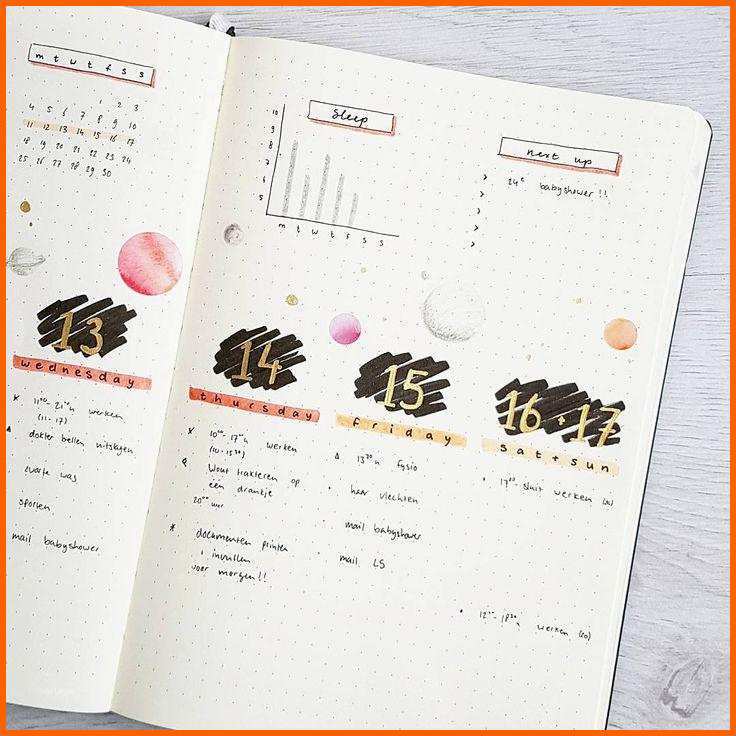 m t w t f s s
1 2 3
4 5 6 7 8 9 10
11 12 13 14 15 16 17
18 19 20 21 22 23 24
25 26 27 28 29 30
13
wednesday
11⁰⁰ - 21⁰⁰h werken
(11-17)
dokter bellen uitslagen
zwarte was
sporten
mail babyshower
Sleep
10
9
8
7
6
5
m t w t f s s
next up
> 24ᵉ babyshower !!
>
>
>
>
14
thursday
10⁰⁰ - 17⁰⁰h werken
Wout trakteren op
één drankje
20⁰⁰ uur
documenten printen
+ invullen
voor morgen!!
15
friday
13³⁰h fysio
haar vlechten
mail babyshower
mail LS
16 + 17
sat + sun
17⁰⁰ sluit werken (za)
12⁰⁰ - 18³⁰h werken (zo)